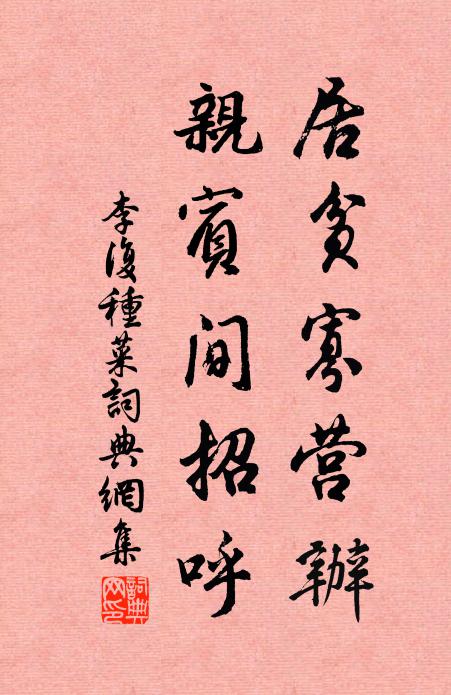 居貧寡营辦
親賓间招呼
李復種菜詞典網集
詞典网印